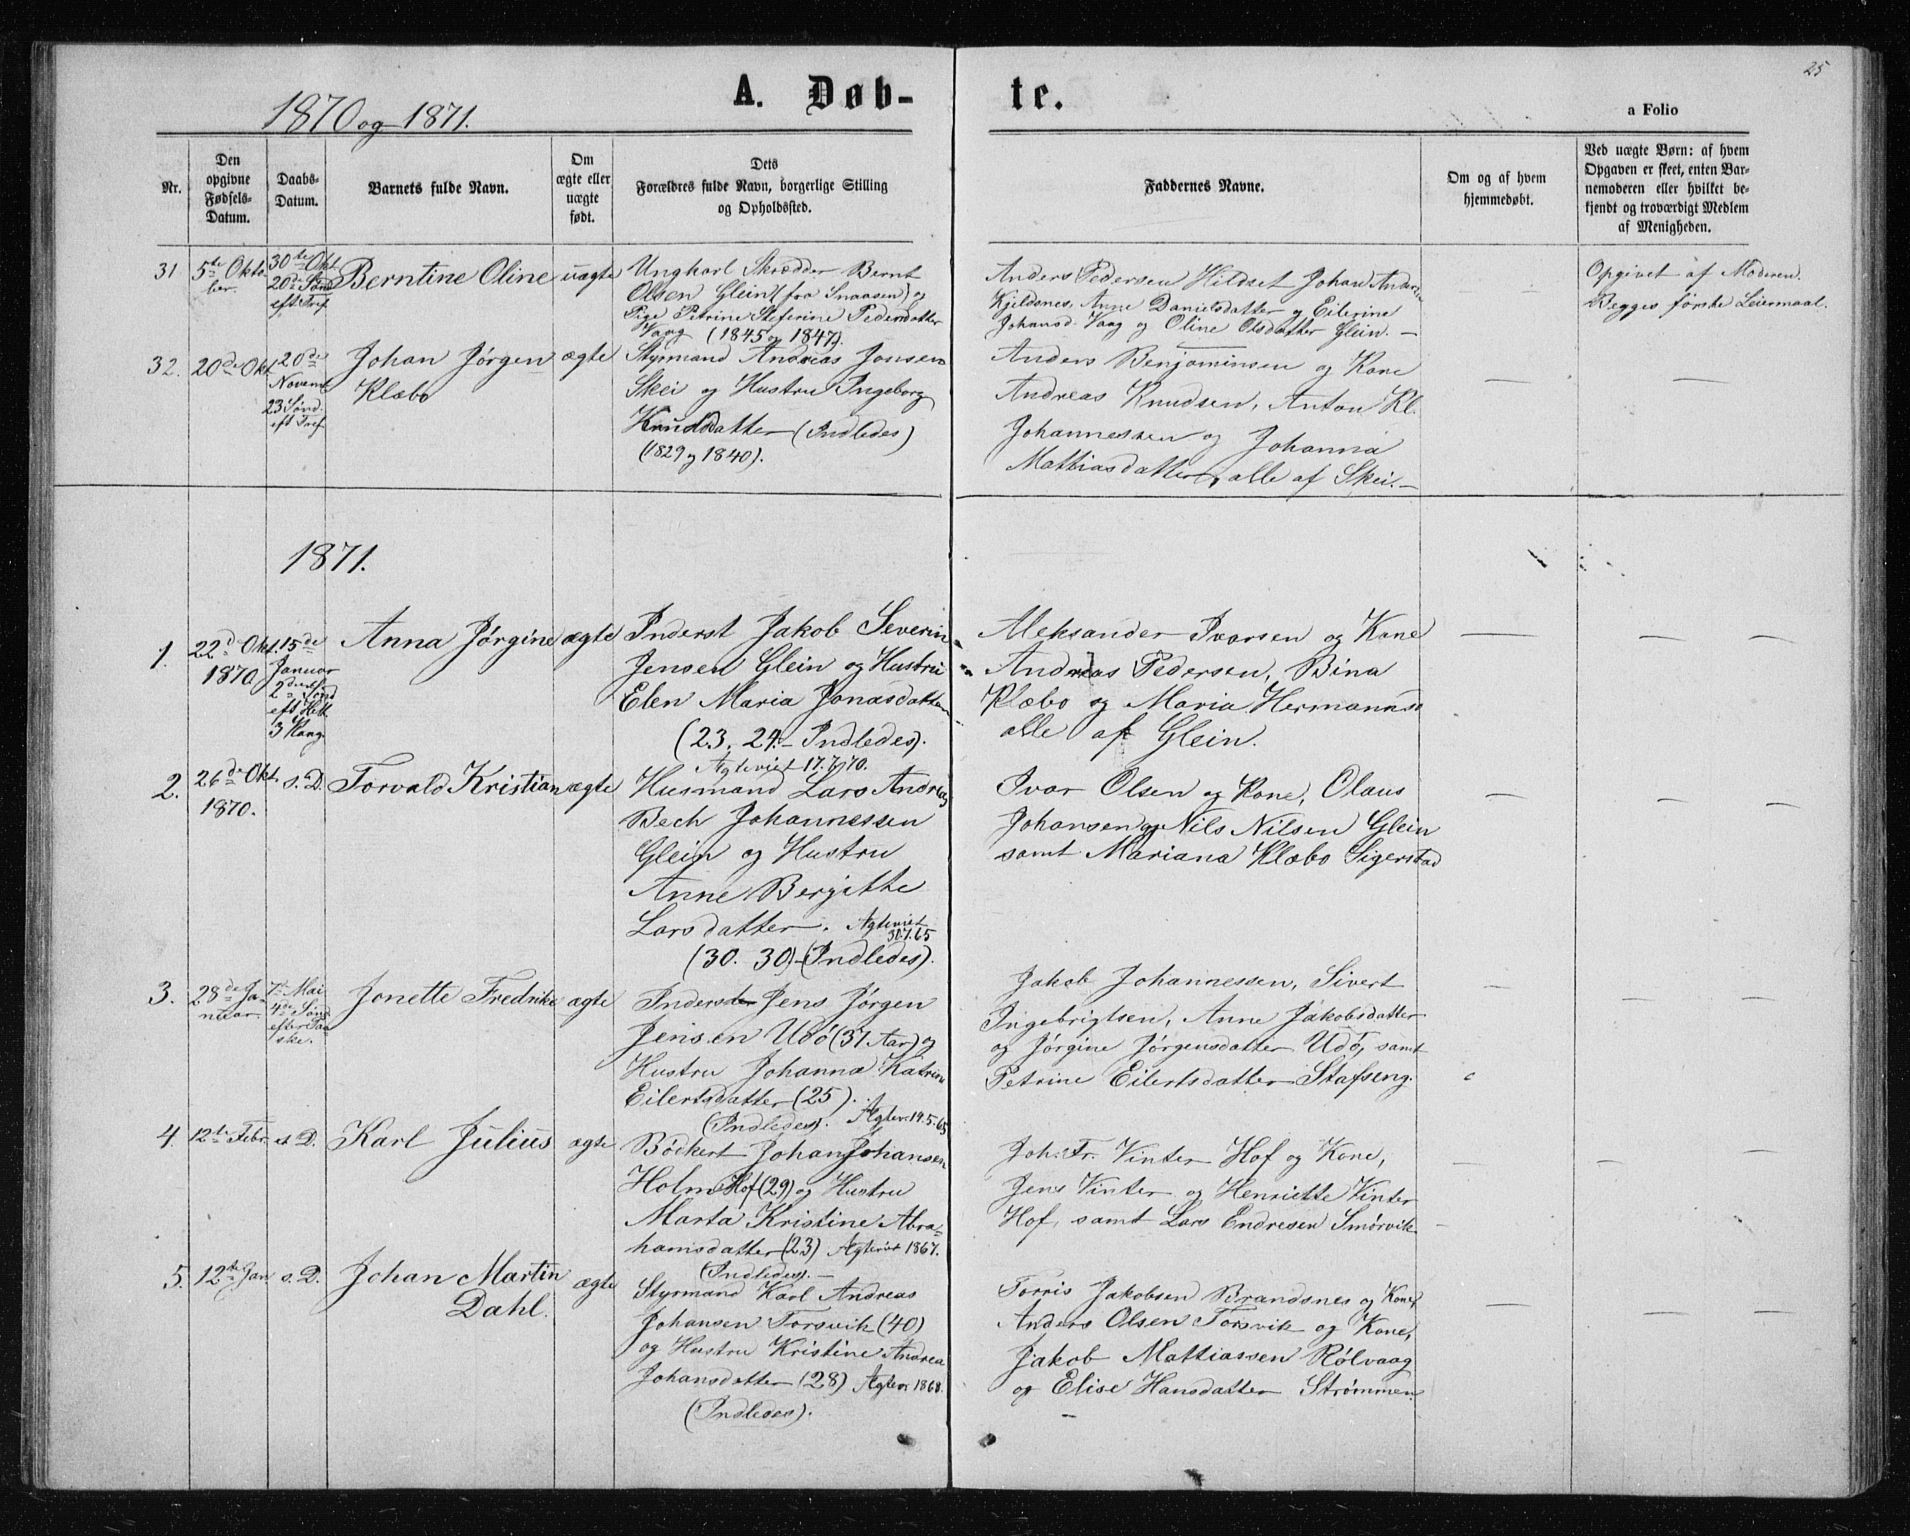 25
1870 og 1871.
A. Døb-
te.
a Folio
Nr.
Den
opgivne
Fødsels-
Datum.
Daabs-
Datum.
Barnets fulde Navn.
Om
ægte eller
uægte
født.
Dets
Forældres fulde Navn, borgerlige Stilling
og Opholdssted.
Faddernes Navne.
Om og af hvem
hjemmedøbt.
Ved uægte Børn: af hvem
Opgaven er skeet, enten Bar-
nemoderen eller hvilket be-
kjendt og troværdigt Medlem
af Menigheden.
31
5te Okto
ber.
30te Okt
20de Sønd
eft Tref
Berntine Oline
uægte
Ungkarl Skrædder Bernt
Olsen Glein (fra Snaasen) og
Pige Petrine Steferine Pedersdatter
Vaag (1845 og 1847).
Anders Pedersen Hildset Johan Anders
Kjeldsnes, Anne Danielsdatter og Eilerine
Johansd. Vaag og Oline Olsdatter Glein. —
Opgivet af Moderen.
Begges første Leiermaal.
32.
20de Okt
20de
Novem
23 Sønd.
eft Tref
Johan Jørgen
Klæbo
ægte
Styrmand Andreas Jonsen
Skei og Hustru Ingeborg
Knudsdatter (Indledes)
(1829 og 1840).
Anders Benjaminsen og Kone
Andreas Knudsen, Anton Kl.
Johannessen og Johanna
Mattiasdatter, alle af Skei. —
1871.
1.
22de Okt.
1870.
15de
Januar
2den Sønd
eft Hell
3 Kong
Anna Jørgine
ægte
Inderst Jakob Severin
Jensen Glein og Hustru
Elen Maria Jonasdatter
(23, 24. — Indledes).
Ægteviet 17.7.70.
Aleksander Ivarsen og Kone
Andreas Pedersen, Bina
Klæbo og Maria Hermanns
alle af Glein.
2.
26de Okt.
1870.
s. D.
Torvald Kristian
ægte
Husmand Lars Andreas
Bech Johannessen
Glein og Hustru
Anne Bergitte
Larsdatter. Ægteviet
30.7.65
(30. 30) — (Indledes).
Ivar Olsen og Kone, Olaus
Johansen og Nils Nilsen Glein
samt Mariana Klæbo Sigerstad
3.
28de Ja-
nuar.
7de Mai
4de Sønd
efter Paa
ske.
Jonette Fredrike
ægte
Inderst Jens Jørgen
Jensen Udø (31 Aar) og
Hustru Johanna Katrine
Eilertsdatter (25).
(Indledes). Ægtev. 19.5.65
Jakob Johannessen, Sivert
Ingebrigtsen, Anne Jakobsdatter
og Jørgine Jørgensdatter Udø, samt
Petrine Eilertsdatter Stafseng.
4.
12te Febr.
s. D.
Karl Julius
ægte
Bødkert Johan Johansen
Holm Hof (29) og Hustru
Marta Kristine Abra-
hamsdatter (23) Ægteviet 1867.
(Indledes). —
Joh. Fr. Vinter Hof og Kone,
Jens Vinter og Henriette Vinter
Hof, samt Lars Endresen Smørvik
5.
12te Jan
s. D.
Johan Martin
Dahl.
ægte
Styrmand Karl Andreas
Johansen Forsvik (40)
og Hustru Kristine Andrea
Johansdatter (28) Ægtev. 1868.
(Indledes).
Torris Jakobsen Brandsnes og Kone,
Anders Olsen Forsvik og Kone,
Jakob Mattiassen Rølvaag
og Elise Hansdatter Strømmen